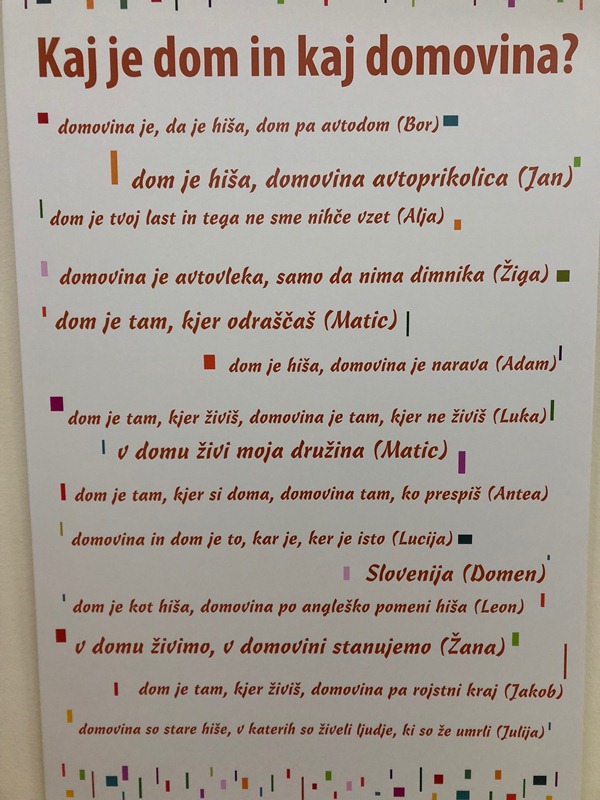 Kaj je dom in kaj domovina?
domovina je, da je hiša, dom pa avtodom (Bor)
dom je hiša, domovina avtoprikolica (Jan)
dom je tvoj last in tega ne sme nihče vzet (Alja)
domovina je avtovleka, samo da nima dimnika (Žiga)
dom je tam, kjer odraščaš (Matic)
dom je hiša, domovina je narava (Adam)
dom je tam, kjer živiš, domovina je tam, kjer ne živiš (Luka)
v domu živi moja družina (Matic)
dom je tam, kjer si doma, domovina tam, ko prespiš (Antea)
domovina in dom je to, kar je, ker je isto (Lucija)
Slovenija (Domen)
dom je kot hiša, domovina po angleško pomeni hiša (Leon)
v domu živimo, v domovini stanujemo (Žana)
dom je tam, kjer živiš, domovina pa rojstni kraj (Jakob)
domovina so stare hiše, v katerih so živeli ljudje, ki so že umrli (Julija)